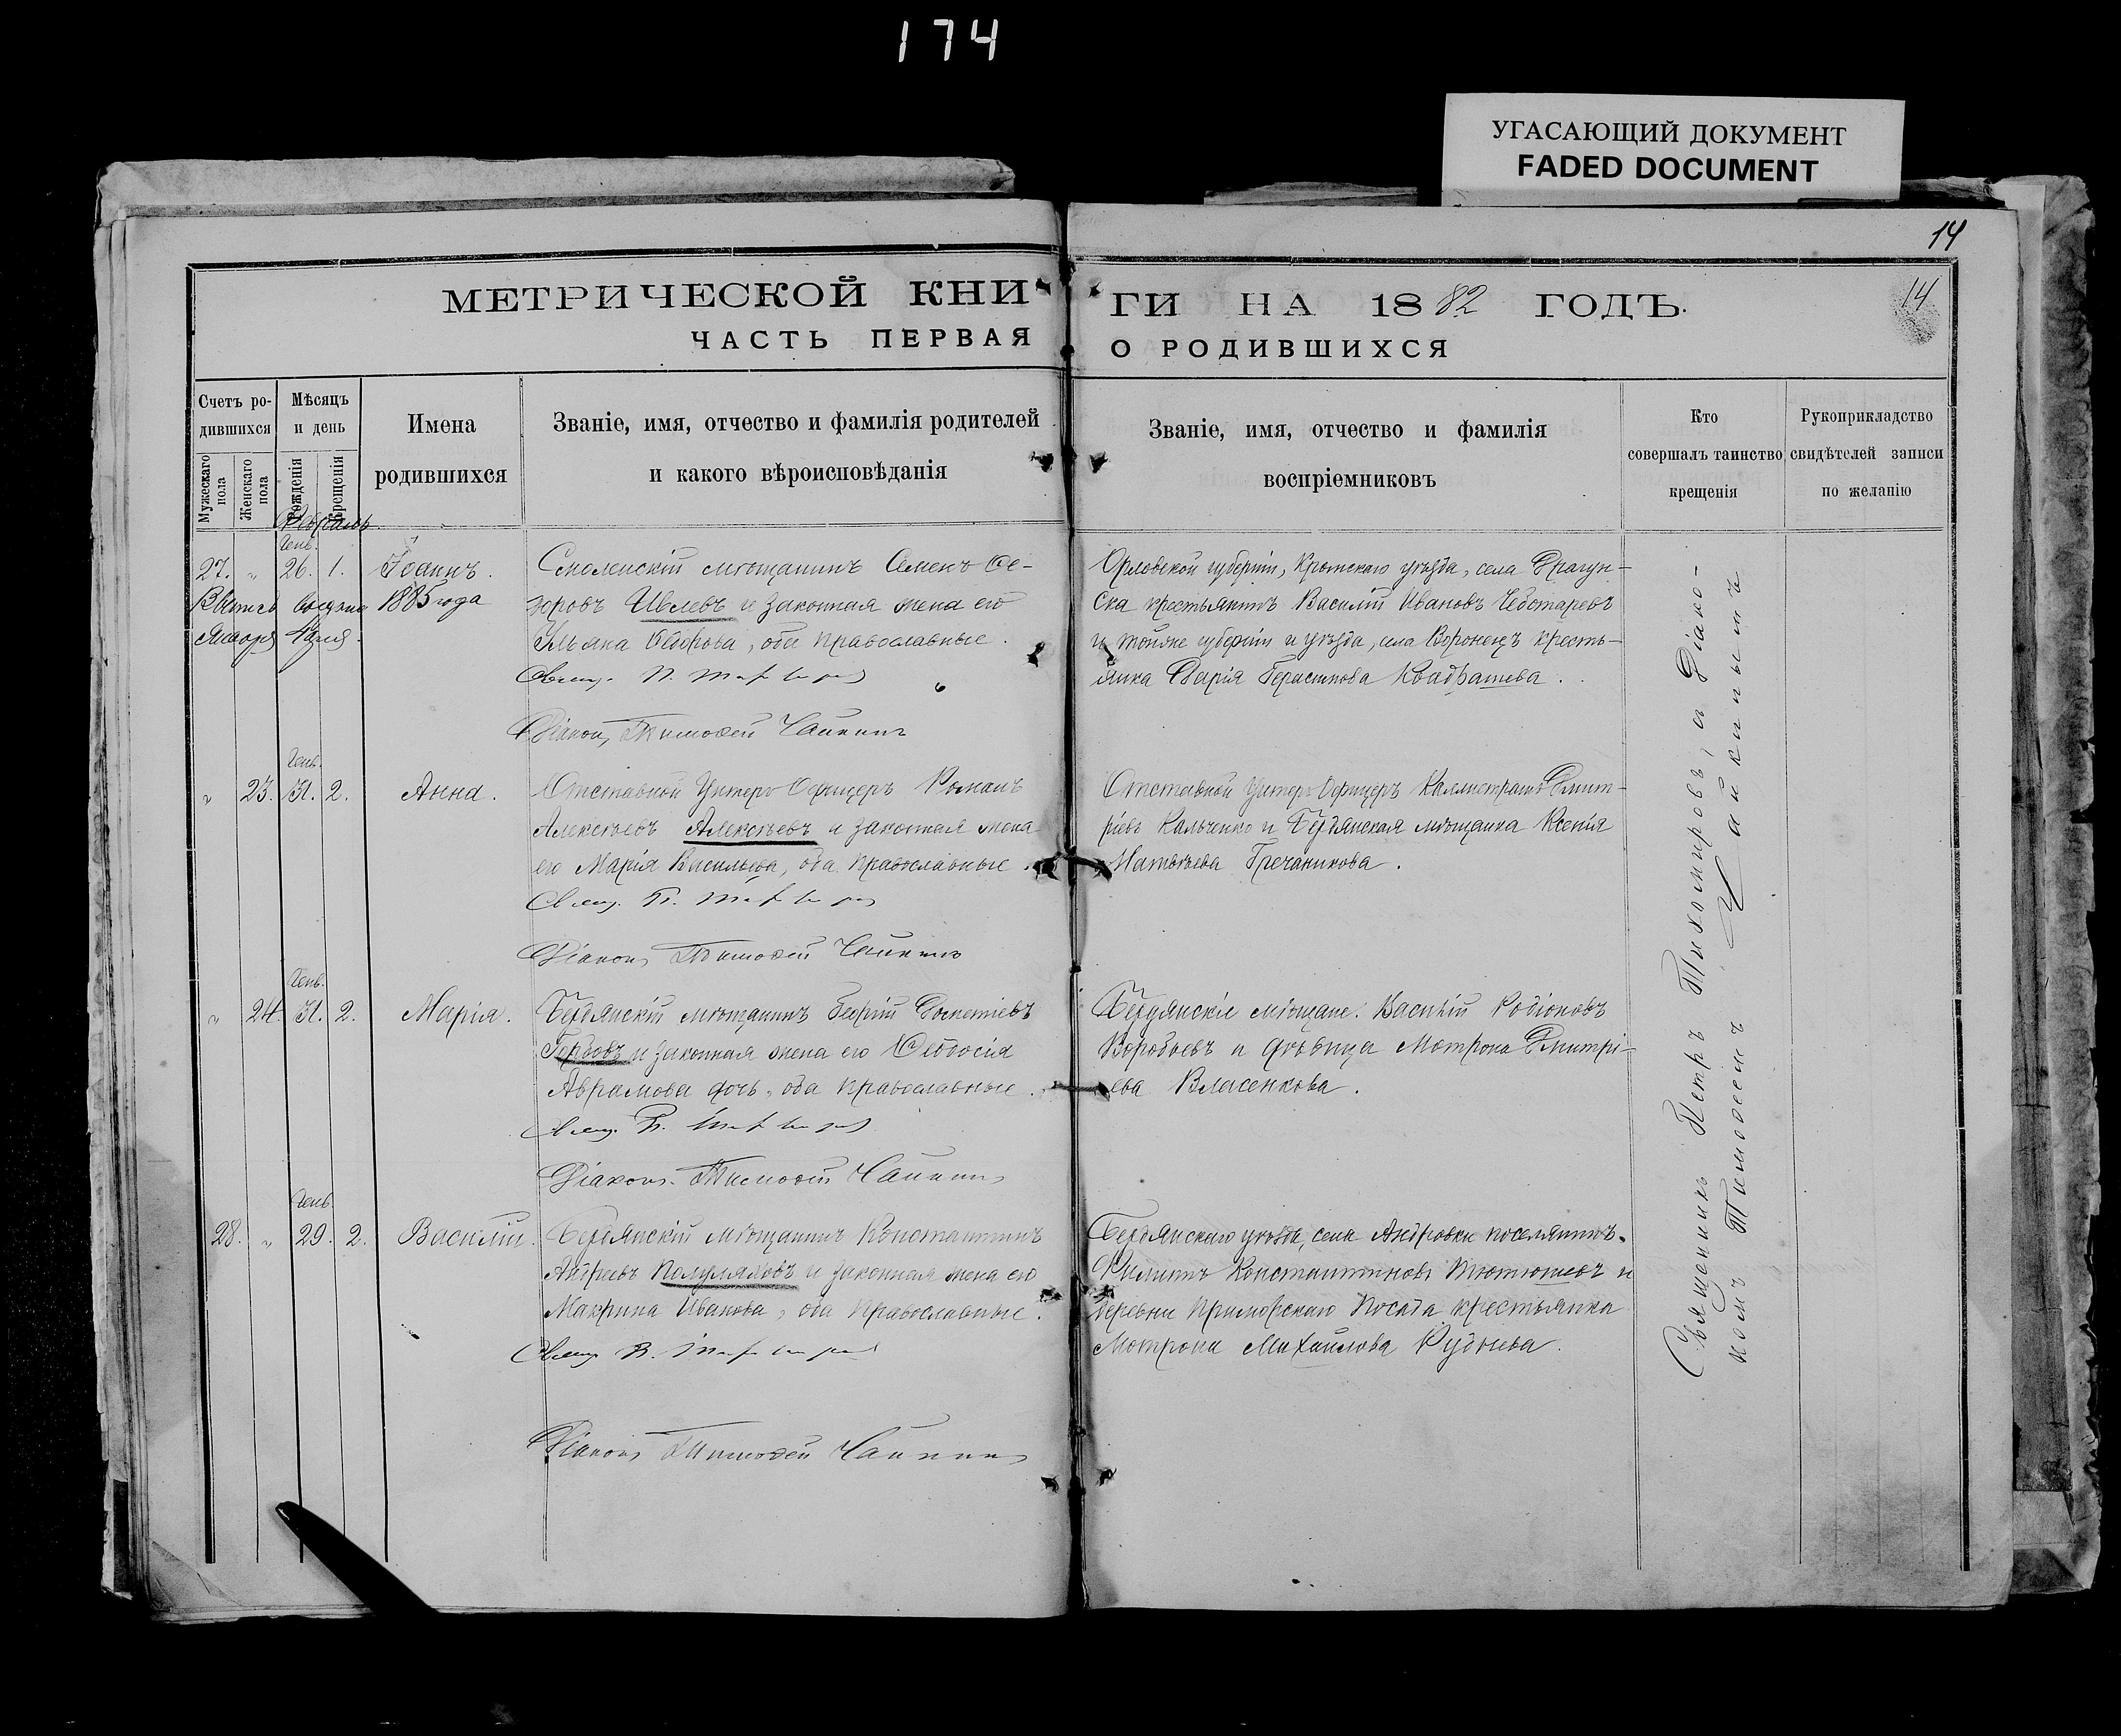 174
УГАСАЮЩИЙ ДОКУМЕНТ
FADED DOCUMENT
14
14
МЕТРИЧЕСКОЙ КНИ
ГИ НА 1882 ГОДЪ.
ЧАСТЬ ПЕРВАЯ
О РОДИВШИХСЯ
Счетъ ро-
дившихся
Мужескаго пола
Женскаго пола
Мѣсяцъ
и день
Рожденія
Крещенія
Имена
родившихся
Званіе, имя, отчество и фамилія родителей
и какого вѣроисповѣданія
Званіе, имя, отчество и фамилія
воспріемниковъ
Кто
совершалъ таинство
крещенія
Рукоприкладство
свидѣтелей записи
по желанію
Февраль
Генв.
27. „ 26. 1. Іоаннъ.
1885 года
Смоленскій мѣщанинъ Семенъ Ѳе-
доровъ Ивлевъ и законная жена его
Ѳедорова, оба православные.
Свящ. П.
Діаконъ Тимоѳей Чайкинъ
Орловской губерніи, Кромскаго уѣзда, села Драгун-
ска крестьянинъ Василій Ивановъ Чеботаревъ
и тойже губерніи и уѣзда, села Воронецъ кресть-
янка Дарія
Генв.
„ 23. 31. 2. Анна.
Отставной Унтеръ Офицеръ Романъ
Алексѣевъ Алексѣевъ и законная жена
его Марія Васильева, оба православные.
Свящ. П.
Діаконъ Тимоѳей Чайкинъ
Отставной Унтеръ Офицеръ Каллистратъ Дмит-
ріевъ Кальченко и Бердянская мѣщанка Ксенія
Матвѣева Гречаникова.
Генв.
„ 24. 31. 2. Марія.
Бердянскій мѣщанинъ Георгій
и законная жена его Ѳеодосія
Аврамова дочь, оба православные.
Свящ. П.
Діаконъ Тимоѳей Чайкинъ
Бердянскіе мѣщане: Василій Родіоновъ
Воробьевъ и дѣвица Мотрона Дмитрі-
ева Власенкова.
Генв.
28. „ 29. 2. Василій.
Бердянскій мѣщанинъ Константинъ
Андреевъ и законная жена его
Макрина Иванова, оба православные.
Свящ. П.
Діаконъ Тимоѳей Чайкинъ
Бердянскаго уѣзда, села Андровки поселянинъ
Филиппъ Константиновъ Тютюневъ и
деревни Приморскаго Посада крестьянка
Мотрона Михаилова Руднева.
Священникъ Петръ Тихомировъ, съ Діако-
номъ Тимоѳеемъ Чайкинымъ